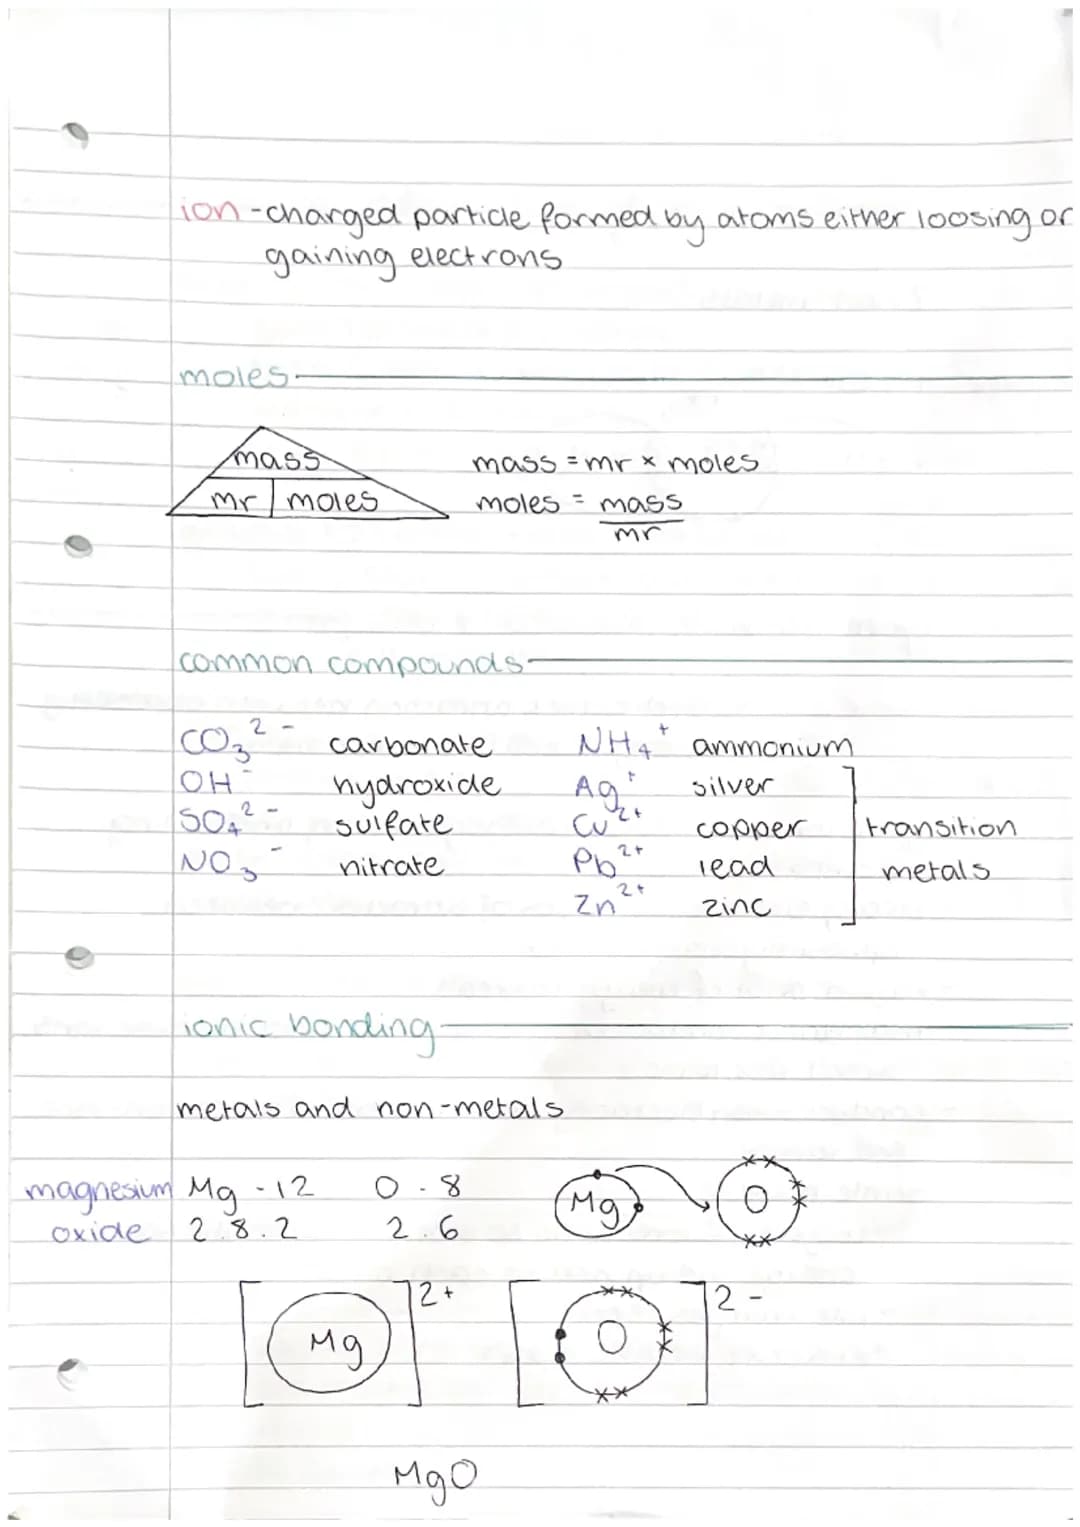 ion - charged particle formed by atoms either loosing or
gaining electrons
moles
mass
mr | moles
mass = mr × moles
moles = mass
mr
common compounds
CO₃²⁻ carbonate NH₄⁺ ammonium
OH⁻ hydroxide Ag⁺ silver
SO₄²⁻ sulfate Cu²⁺ copper transition
NO₃⁻ nitrate Pb²⁺ lead metals
Zn²⁺ zinc
ionic bonding
metals and non-metals
magnesium Mg - 12 O - 8 Mg O
oxide 2.8.2 2.6
[Mg]²⁺ [O]²⁻
MgO